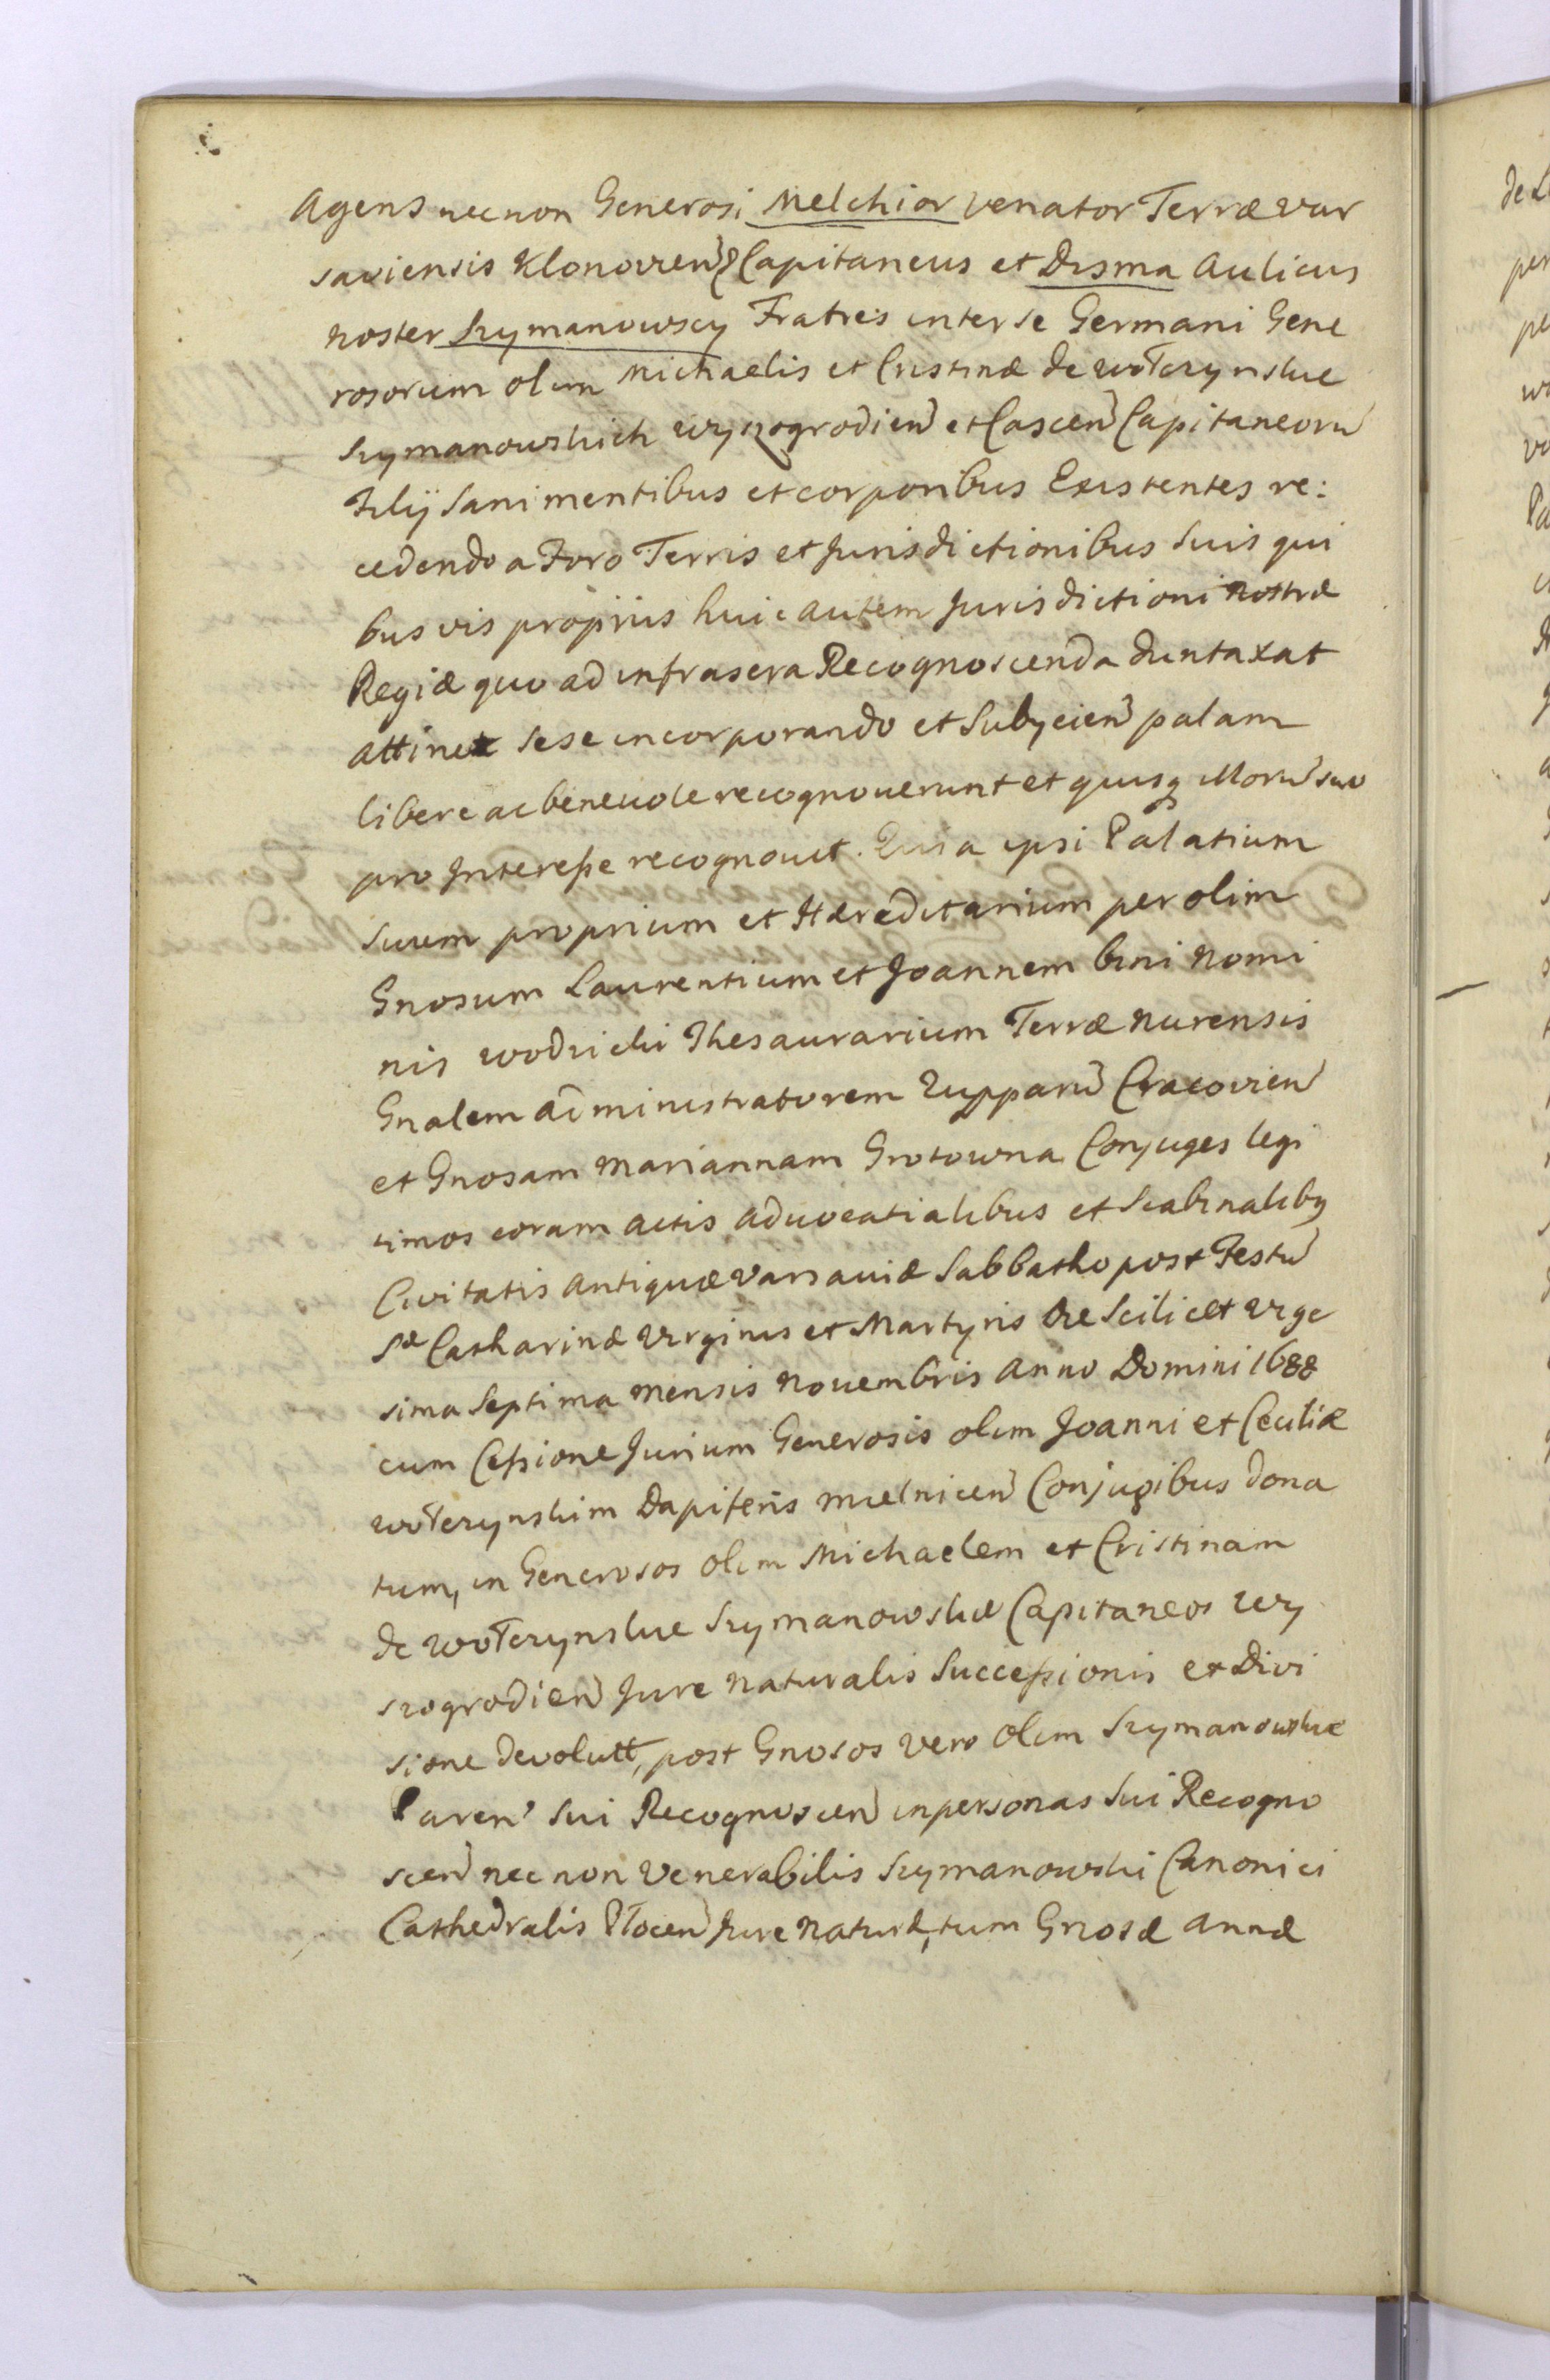 Agens nec non Generosi Melchior Venator Terræ Var
saviensis Klonovien Capitaneus et Disma Aulicus
noster Szymanowscy Fratres inter se Germani Gene
rosorum olim Michaelis et Cristinæ de Wołczynskie
Szymanowskich Wyszogrodien et Cascen Capitaneoru
Filÿ Sani mentibus et corporibus Existentes re:
cedendo a Foro Terris et Jurisdictionibus Suis qui
busvis proprijs huic autem Jurisdictioni Nostræ
Regiæ quo ad infrascra Recognoscenda duntaxat
attinet sese incorporando et Subÿcien palam
libere ac benevole recognoverunt et quisq illoru suo
pro Interesse recognovit. Quia ipsi Palatium
Suum proprium et Hæreditarium per olim
Gnosum Laurentium et Joannem bini Nomi
nis Wodzicki Thesaurarium Terræ Nurensis
Gnalem administratorem Zupparu Cracovien
et Gnosam Mariannam Grotowna Conjuges legi
timos coram actis advocatialibus et Scabinalibq
Civitatis Antiquæ Varsaviæ Sabbatho post Festu
Sæ Catharinæ Virginis et Martyris Die Scilicet vige
sima Septima Mensis Novembris Anno Domini 1688
cum Cessione Jurium Generosis olim Joanni et Ceciliæ
Wołczynskim Dapiferis Mielnicen Conjugibus dona
tum, in Generosos olim Michaelem et Cristinam
de Wołczynskie Szymanowskie Capitaneos Wy
szogrodien Jure Naturalis Successionis et Divi
sione devolutt, post Gnosos vero olim Szymanowskie
Paren' Sui Recognoscen in personas Sui Recogno
scen nec non Venerabilis Szymanowski Canonici
Cathedralis Płocen Jure Naturæ, tum Gnosæ Annæ